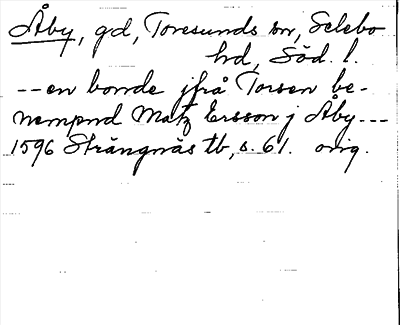 Åby, gd, Toresunds sn, Selebo
hd, Söd. l.
--en bonde jfrå Torsen be-
nempnd Matz Ersson j Åby---
1596 Strängnäs tb, s. 61. orig.